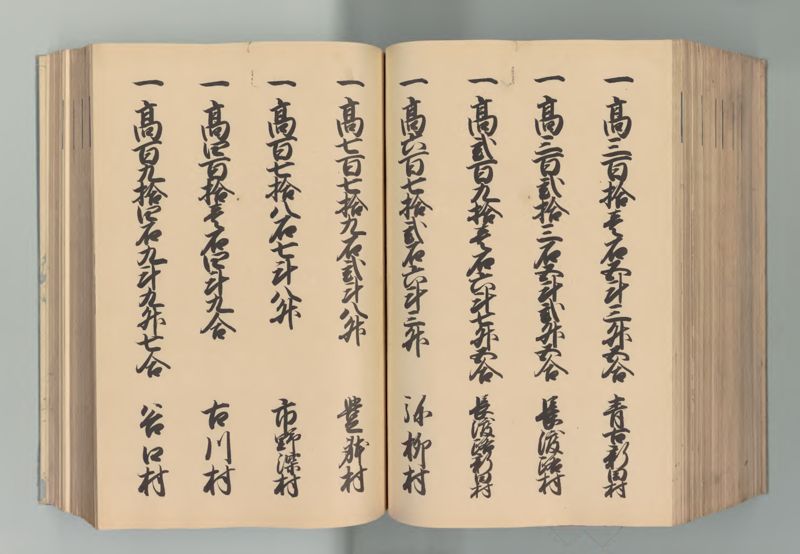 一高三百拾壱石五斗三升五合 青古新田村
一高三百弐拾三石五斗弐升五合 長渡路村
一高弐百九拾壱石六斗七升五合 長渡路新田村
一高六百七拾弐石六斗三升 弥柳村
一高七百七拾九石弐斗八升 豊村
一高百七拾八石七斗八升 市野村
一高四百拾壱石四斗九合 古川村
一高百九拾四石九斗九升七合 谷口村